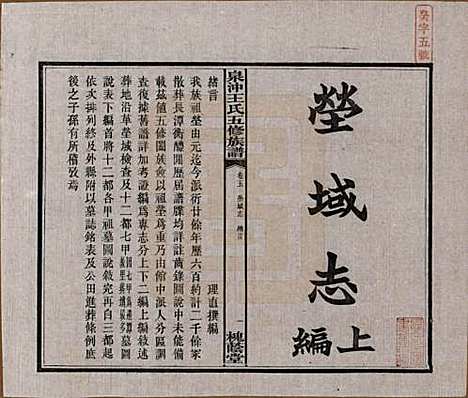 癸字五號
塋域志
上編
泉沖王氏五修族譜
卷五 塋域志 緒言
一 槐蔭堂
緒言
理直撰編
我族祖塋由元迄今派衍廿餘年歷六百約計二千餘冢
散葬長潭衡醴閒歷屆譜牒均詳註萵鋒圖說中未能備
載茲値五修闔族僉以祖塋爲重乃由各派人分區調
查復據舊譜詳加考證編爲專志分上下二編上編敘述
葬地沿革塋域檢查及十二都七甲
墓圖
說下編首將十二都各甲祖墓圖說敘完再自三都起
依次排列終及外縣附以墓誌銘表及公田進葬條例庶
後之子孫有所稽攷焉